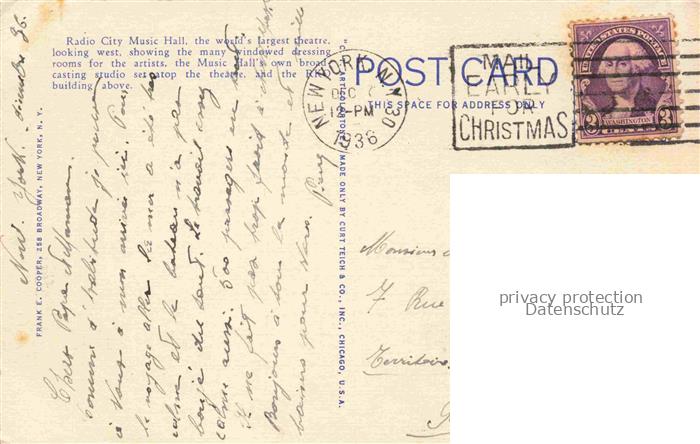 Radio City Music Hall, the world's largest theatre,
looking west, showing the many windowed dressing
rooms for the artists, the Music Hall's own broad
casting studio atop the theatre, and the
building above.
FRANK E. COOPER, 258 BROADWAY, NEW YORK, N. Y.
MADE ONLY BY CURT TEICH & CO., INC., CHICAGO, U.S.A.
POST CARD
THIS SPACE FOR ADDRESS ONLY
NEW YORK, N.Y.
DEC
12-PM
1936
MAIL
EARLY
FOR
CHRISTMAS
UNITED STATES POSTAGE
3 WASHINGTON 3
New York. décembre 36.
Chers Papa et Maman.
comme d'habitude je pense
à vous à mon arrivée ici. Pour
le voyage aller la mer a été très
calme et le bateau n'a pas
bougé du tout. Le travail
calme aussi. 500 passagers
Il ne fait pas trop froid à
Bonjours à tout le monde et
baisers pour vous.
Monsieur
7 Rue
Territoire
privacy protection
Datenschutz